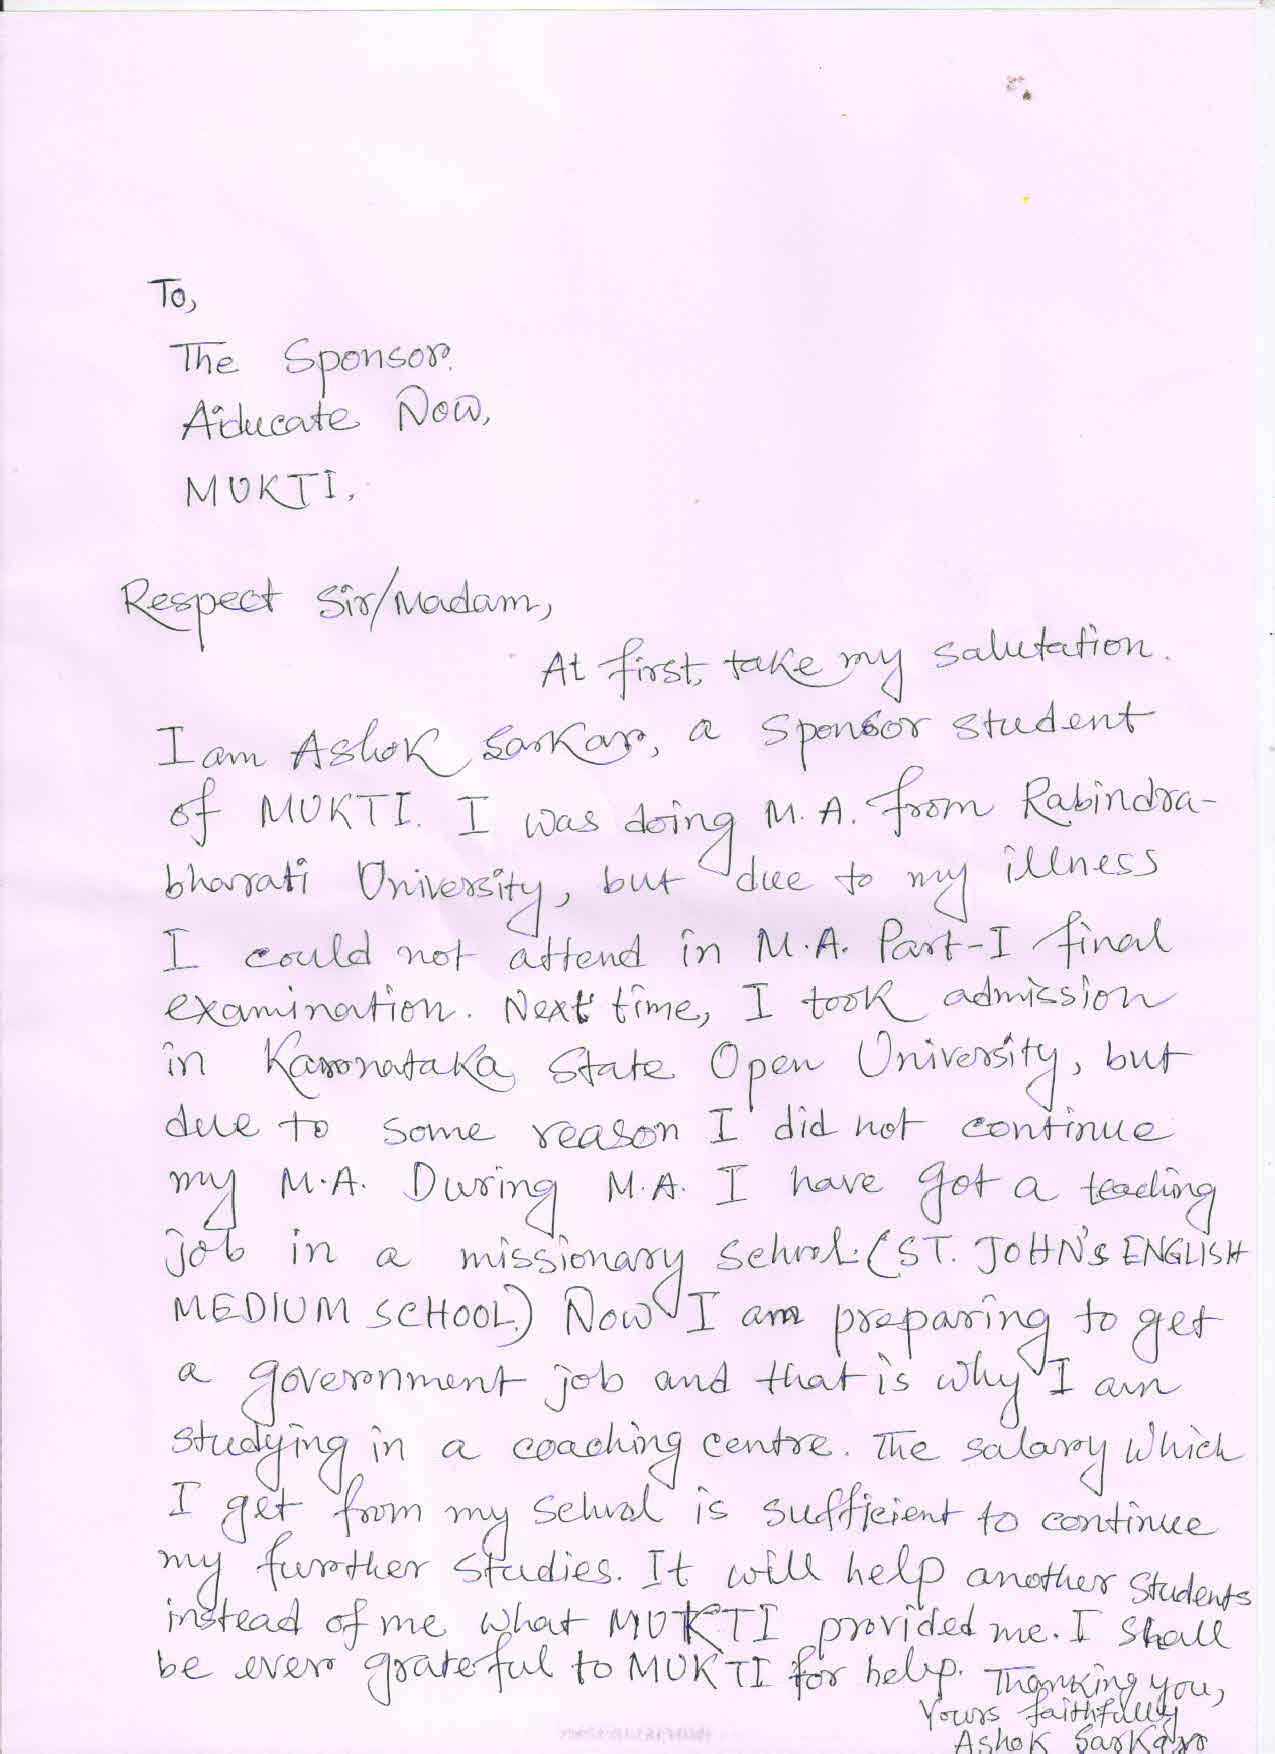 To,
The Sponsor.
Aiducate Now,
MUKTI.
Respect Sir/Madam,
At first, take my salutation.
I am Ashok Sarkar, a sponsor student
of MUKTI. I was doing M.A. from Rabindra-
bharati University, but due to my illness
I could not attend in M.A. Part-I final
examination. Next time, I took admission
in Karonataka State Open University, but
due to some reason I did not continue
my M.A. During M.A. I have got a teaching
job in a missionary school. (ST. JOHN's ENGLISH
MEDIUM SCHOOL.) Now I am preparing to get
a government job and that is why I am
studying in a coaching centre. The salary which
I get from my school is sufficient to continue
my further studies. It will help another students
instead of me what MUKTI provided me. I shall
be ever grateful to MUKTI for help. Thanking you,
Yours faithfully
Ashok Sarkar